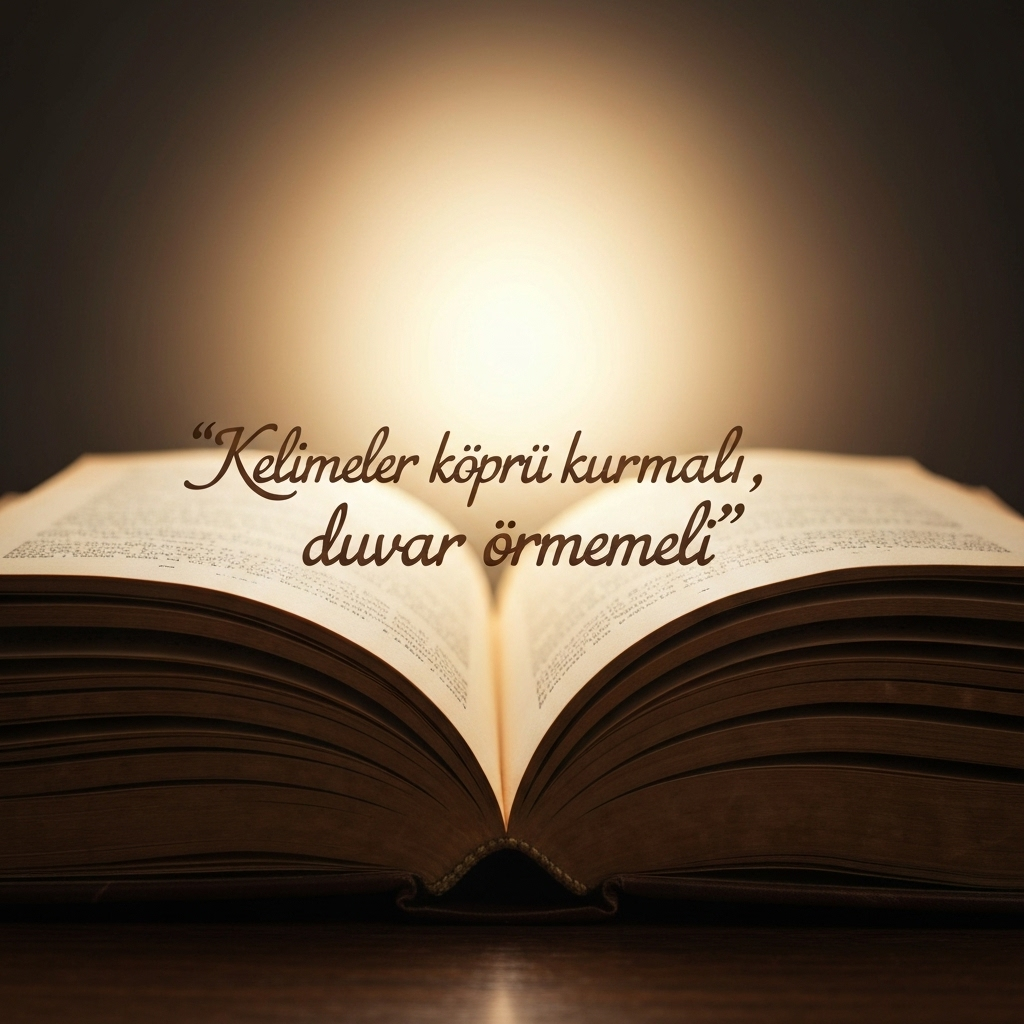 “Kelimeler köprü kurmalı,
duvar örmemeli”